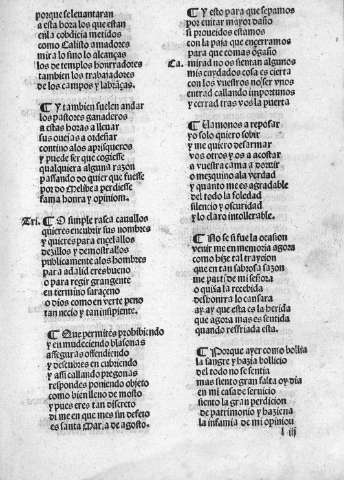 porque se leuantaran
a esta hora los que estan
en la cobdicia metidos
como Calisto amadores
mira lo sino lo alcanças
los de templos honrradores
tambien los trabajadores
de los campos y labrãças.
¶ Y tambien suelen andar
los pastores ganaderos
a estas horas a llenar
sus ouejas a ordeñar
contino alos aprisqueros
y puede ser que cogiesse
qualquiera alguna razon
passando do quier que fuesse
por do Melibea perdiesse
fama honra y opinion.
Tri. ¶ O simple rasca cauallos
quieres encubrir sus nombres
y quieres para encelallos
dezillos y demostrallos
publicamente alos hombres
para adalid eres bueno
o para regir gran gente
en termino sarazeno
o dios como en verte peno
tan necio y tan insipiente.
¶ Que permites prohibiendo
y enmudeciendo blasonas
asseguras offendiendo
y descubres encubriendo
y assi callando pregonas
respondes poniendo objeto
como bien lleno de mosto
y pues eres tan discreto
di me en que mes sin defeto
es santa Mar,a de agosto.
¶ Y esto para que sepamos
por euitar mayor daño
si proueidos estamos
con la paja que encerramos
para que comas ogaño
Ca. mirad no os sientan algunos
mis cuydados cosa es cierta
con los vuestros no ser vnos
entrad callando importunos
y cerrad tras vos la puerta
¶ Uamonos a reposar
yo solo quiero sobir
y me quiero desarmar
vos otros y os a acostar
a vuestra cama a dormir
o mezquino ala verdad
y quanto me es agradable
del todo la soledad
silencio y oscuridad
y lo claro intollerable.
¶ No se si fue la ocasion
venir me en memoria agora
como hize tal trayzion
que en tan sabrosa sazon
me parti de mi señora
o quiça la recebida
deshonrra lo causara
ay ay que esta es la herida
que agora mas es sentida
quando resfriada esta.
¶ Porque ayer como bollia
la sangre y hazia bollicio
del todo no se sentia
mas siento gran falta oy dia
en mi casa de seruicio
siento la gran perdicion
de patrimonio y hazienа
la infamia de mi opinion
l iij